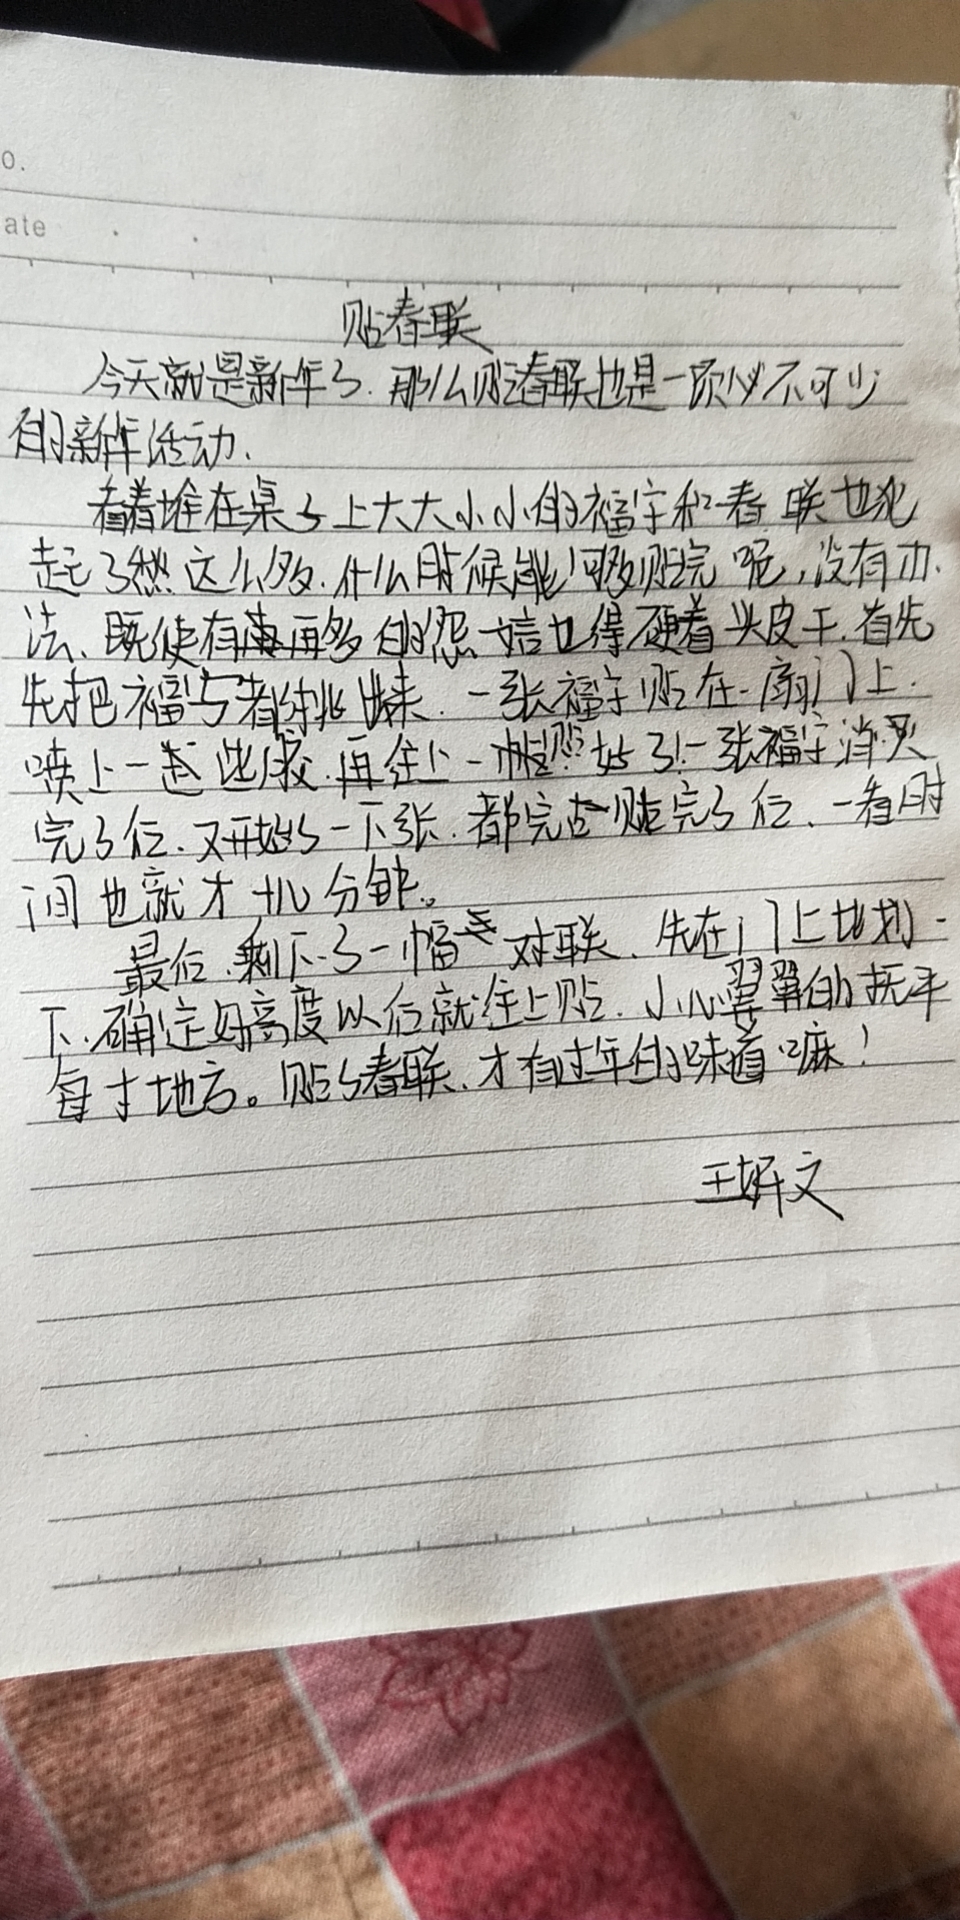 o.
ate
贴春联
今天就是新年了.那么贴春联也是一项必不可少
的新年活动.
看着堆在桌子上大大小小的福字和春联也犯
起了愁这么多.什么时候能够贴完呢,没有办
法、既使有再多的怨言也得硬着头皮干.首先
先把福字都挑出来.一张福字贴在一扇门上.
喷上一些胶.再往上一贴好了!一张福字消灭
完了后.又开始了下一张.都贴完了后、一看时
间也就才十几分钟。
最后.剩下了一幅对联、先在门上比划一
下.确定好高度以后就往上贴.小心翼翼的抚平
每寸地方。贴了春联.才有过年的味道嘛!
王妍文